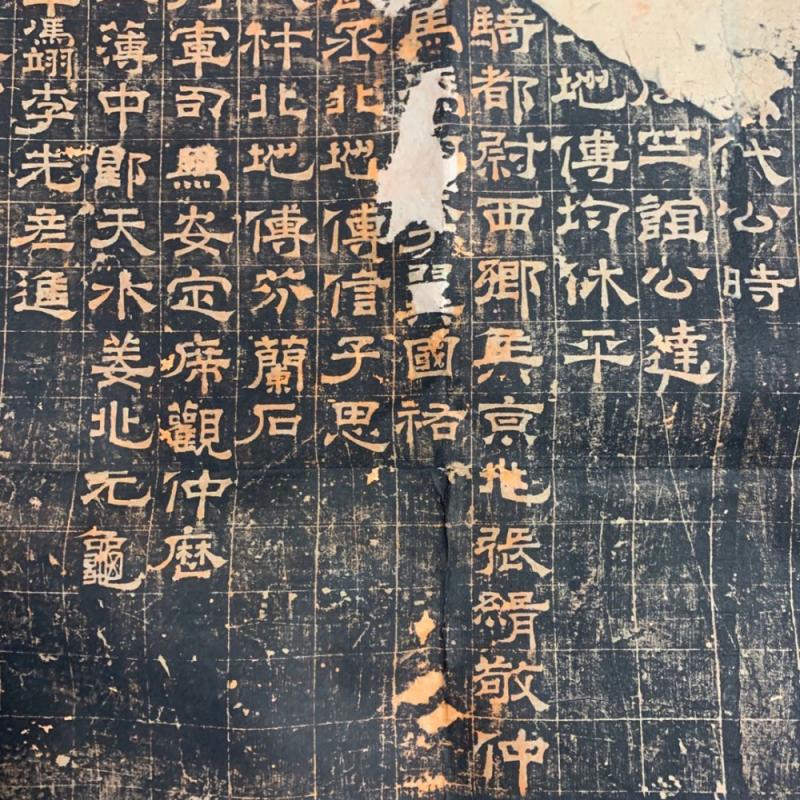 代公時
竺誼公達
地傅均休平
騎都尉西鄉侯京兆張緝敬仲
馬翼國祐
丞北地傅信子思
北地傅芬蘭石
軍司馬安定席觀仲歷
薄中郎天水姜兆元龜
馮翊李先彥進